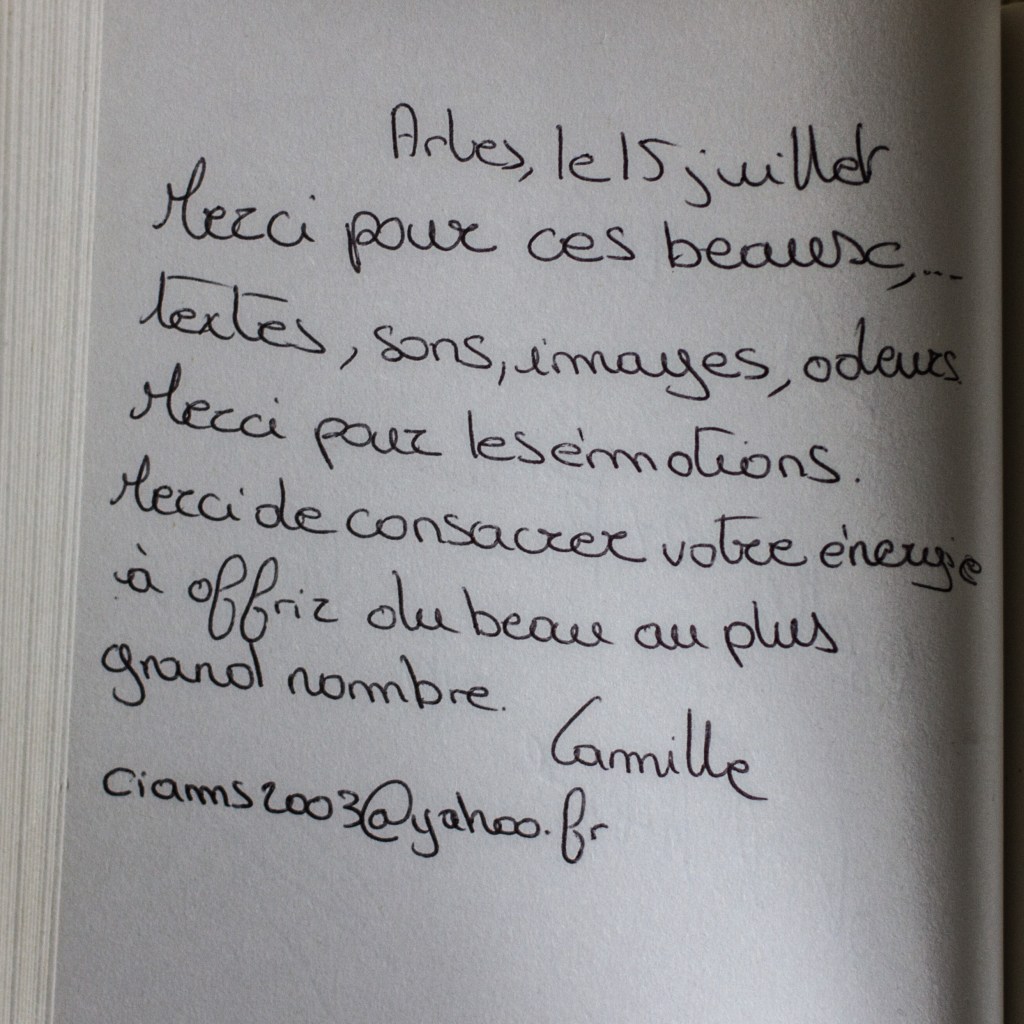 Arles, le 15 juillet
Merci pour ces beaux,...
textes, sons, images, odeurs
Merci pour les émotions.
Merci de consacrer votre énergie
à offrir du beau au plus
grand nombre.
Camille
ciams2003@yahoo.fr